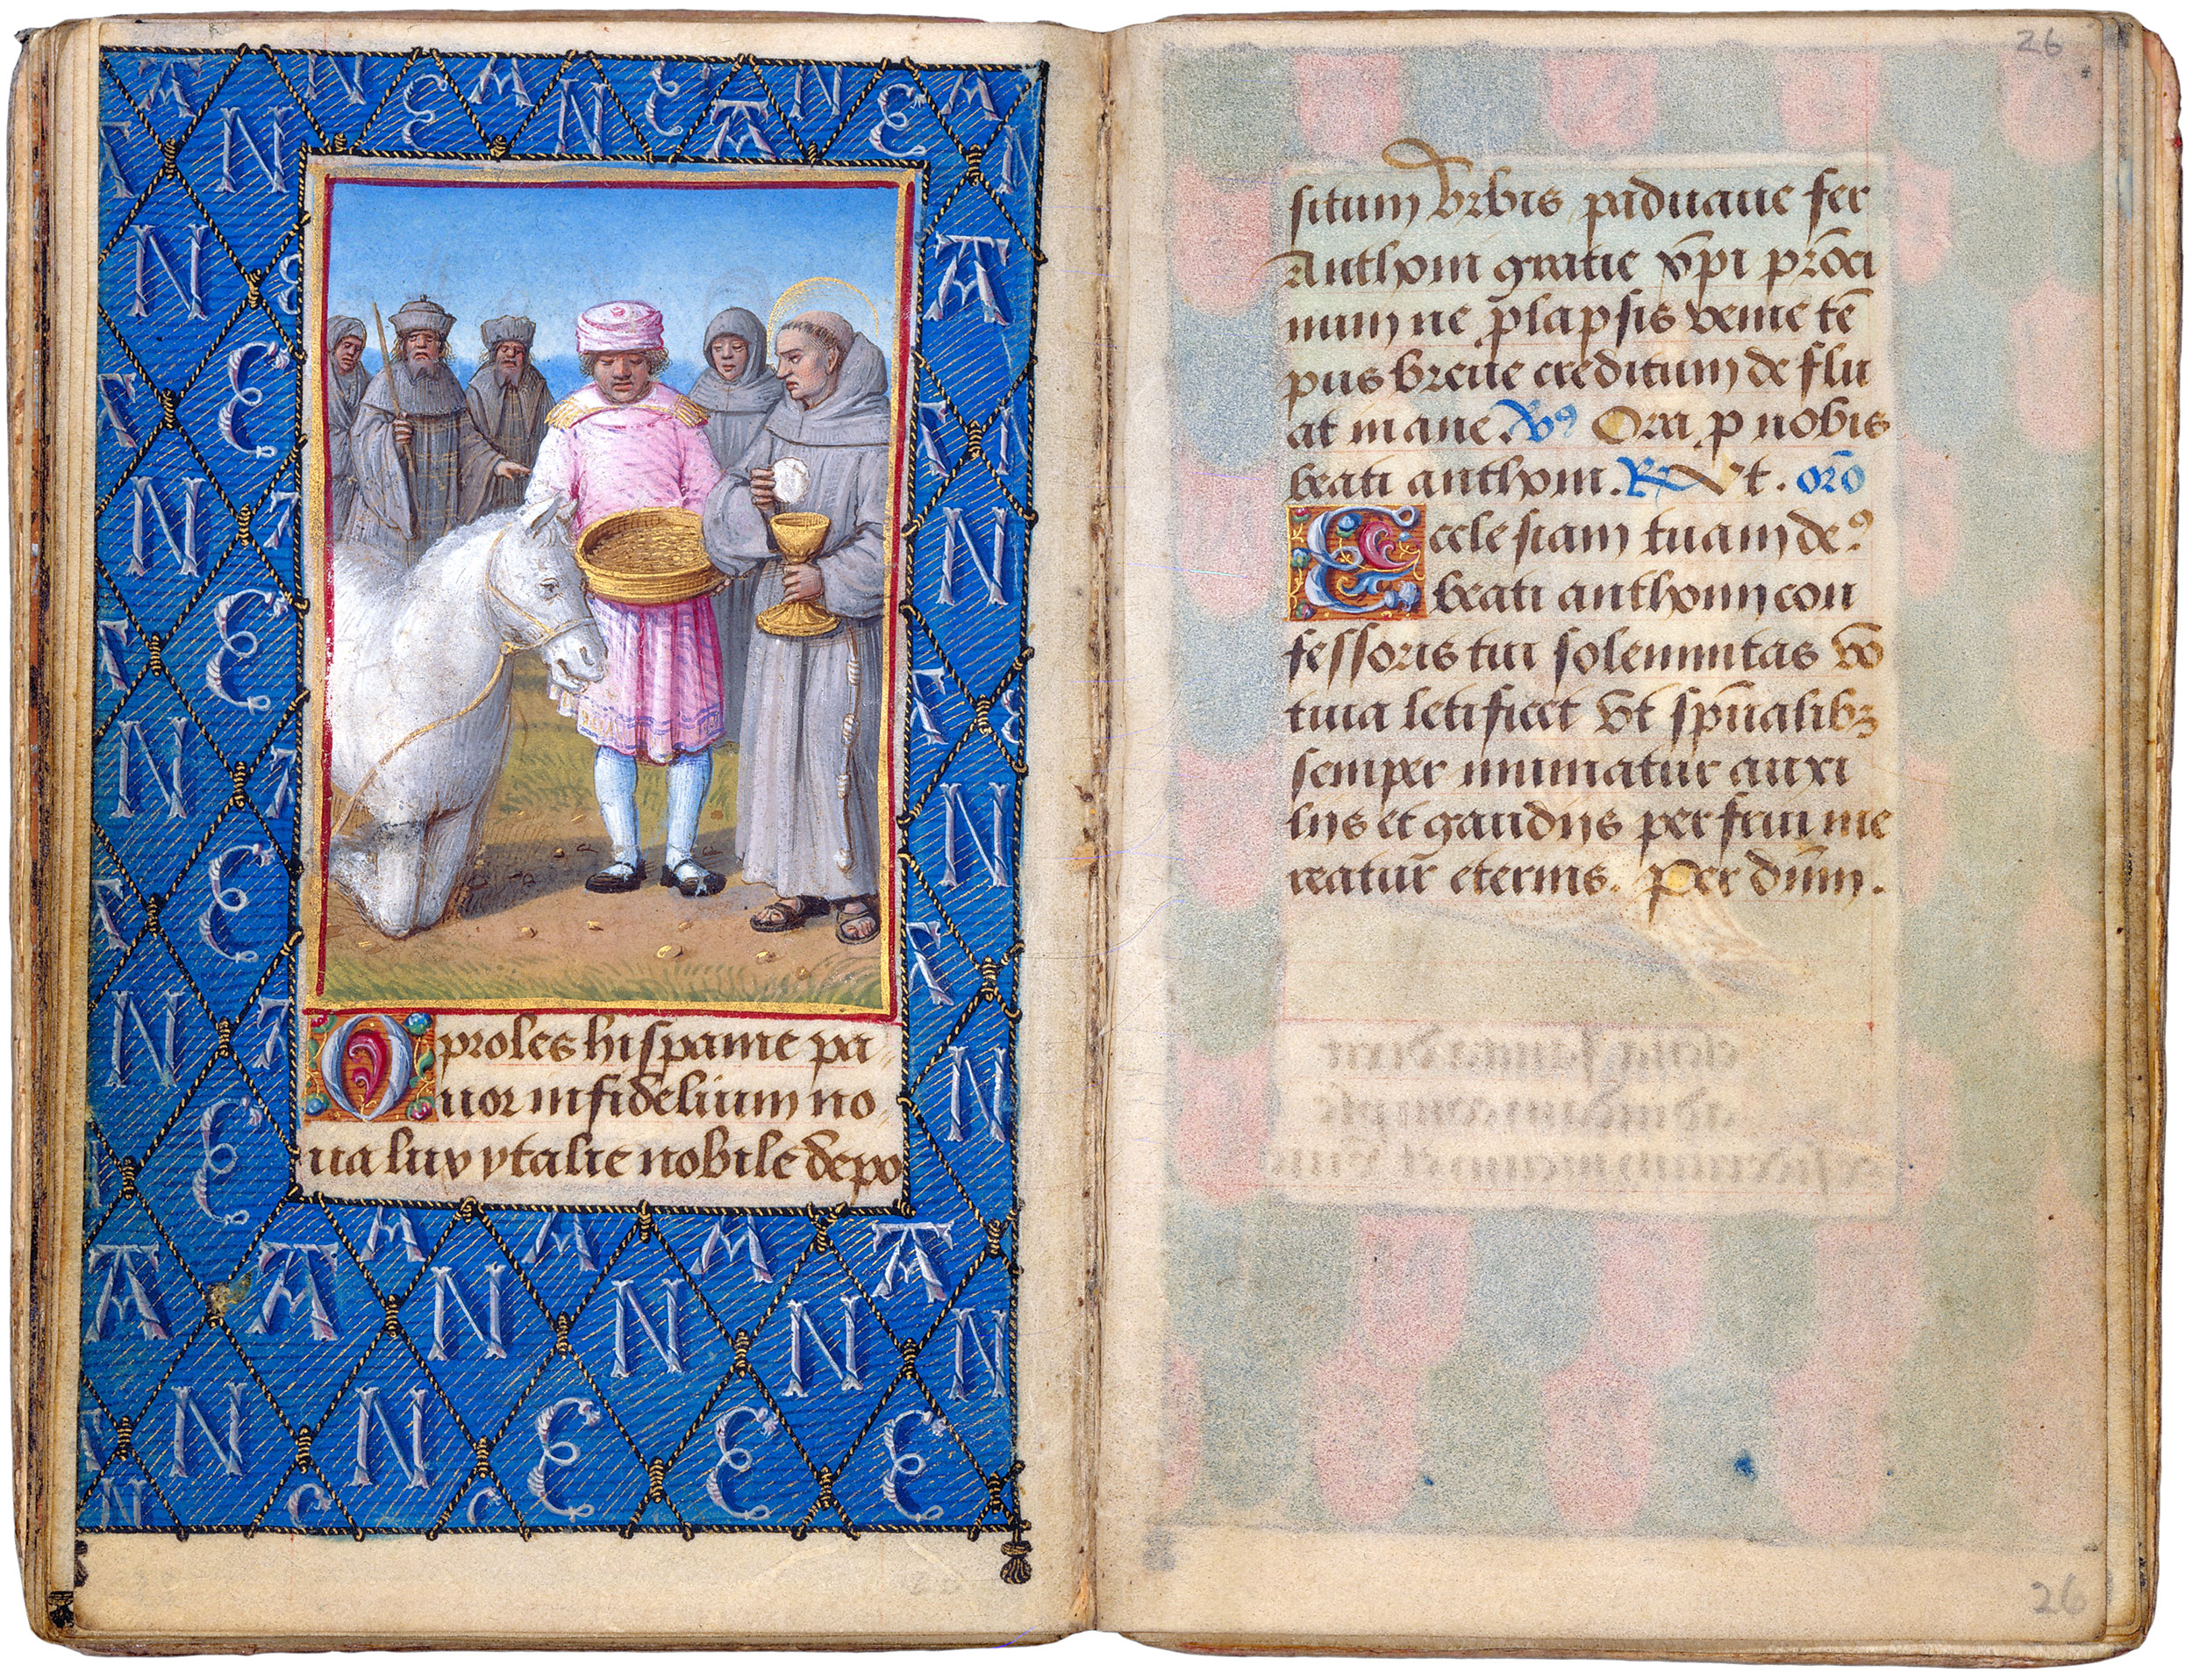 O proles hispanie pa
uor infidelium no
ua lux ytalie nobile depo
26
situm vrbis paduane fer
Anthoni gratie xp̄i prōci
mum ne plapsis venie tē
pus breue creditum de flu
at inane. V9 Ora p nobis
beati anthoni. R Vt. orō
Ecclesiam tuam de9
beati anthonij con
fessoris tui solemnitas vo
tiua letificet vt sp̄ualibꝫ
semper muniatur auxi
lijs et gaudijs perfrui me
reatur̄ eternis. Per dūm.
26